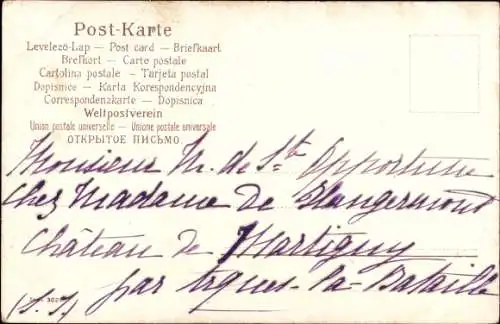 Post-Karte
Levelező-Lap — Post card — Briefkaart
Brefkort — Carte postale
Cartolina postale — Tarjeta postal
Dopisnice — Karta Korespondencyjna
Correspondenzkarte — Dopisnica
Weltpostverein
Union postale universelle — Unione postale universale
ОТКРЫТОЕ ПИСЬМО.
Monsieur M. de Ste Opportune
Chez Madame de Blangermont
Château de Martigny
par Arques-la-Bataille
(S. I)